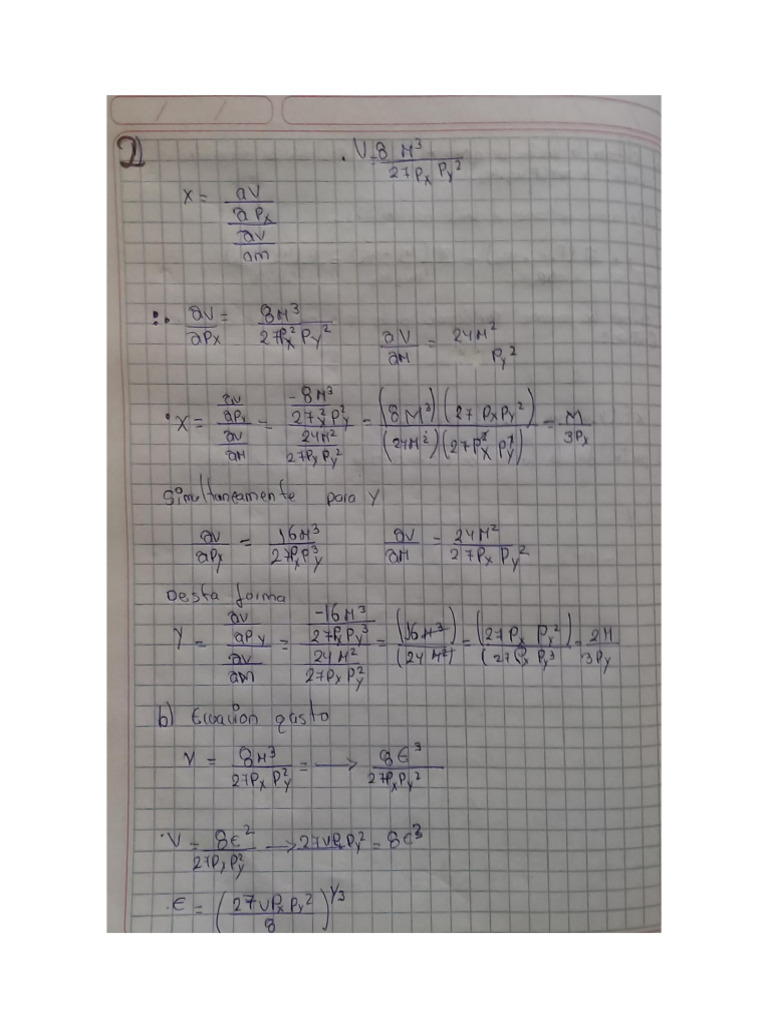 2)
V=8 M³ / 27Px Py²
X = av / aPx / av / am
∴ av/aPx = 8M³ / 27Px² Py²    av/aM = 24M² / Py²
·X = av/aPx / av/aM = -8M³ / 27Px² Py² / 24M² / 27Px Py² = (8M³)(27PxPy²) / (24M²)(27Px² Py²) = M / 3Px
Simultaneamente para Y
av/aPy = 16M³ / 27PxPy³    av/aM = 24M² / 27Px Py²
Desta forma
Y = av/aPy / av/am = -16M³ / 27PxPy³ / 24M² / 27Px Py² = (16M³) / (24M²) = (27Px Py²) / (27Px Py³ = 2M / 3Py
b) Ecuación gasto
V = 8M³ / 27Px Py² = → 8E³ / 27PxPy²
·V = 8E² / 27PxPy² → 27VPxPy² = 8E³
·E = (27VPxPy² / 8)^1/3